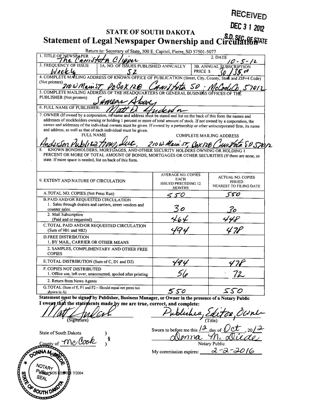 RECEIVED
DEC 31 2012
S.D. SEC. OF STATE
STATE OF SOUTH DAKOTA
Statement of Legal Newspaper Ownership and Circulation
Return to: Secretary of State, 500 E. Capitol, Pierre, SD 57501-5077
1. TITLE OF NEWSPAPER
The Canistota Clipper
2. DATE
10-5-12
3. FREQUENCY OF ISSUE
Weekly
3A. NO. OF ISSUES PUBLISHED ANNUALLY
52
3B. ANNUAL SUBSCRIPTION PRICE $
4. COMPLETE MAILING ADDRESS OF KNOWN OFFICE OF PUBLICATION (Street, City, County, State and ZIP+4 Code) (Not printers)
210 W Main ST PO Box 128 Canistota SD McCook 57012
5. COMPLETE MAILING ADDRESS OF THE HEADQUARTERS OR GENERAL BUSINESS OFFICES OF THE PUBLISHER (Not printers)
Same as Above
6. FULL NAME OF PUBLISHER:
Matt Anderson
7. OWNER (If owned by a corporation, its name and address must be stated and
FULL NAME
COMPLETE MAILING ADDRESS
Anderson Publications, Inc
210 W Main ST Box 128 Canistota SD 57012
8. KNOWN BONDHOLDERS, MORTGAGES, AND OTHER SECURITY HOLDERS OWNING OR HOLDING 1 PERCENT OR MORE OF TOTAL AMOUNT OF BONDS, MORTGAGES OR OTHER SECURITIES (If there are none, so state. If more space is needed, list on back of this form.
9. EXTENT AND NATURE OF CIRCULATION
AVERAGE NO. COPIES EACH ISSUED PRECEDING 12 MONTHS
ACTUAL NO. COPIES ISSUED NEAREST TO FILING DATE
A. TOTAL NO. COPIES (Net Press Run)
550
550
B. PAID AND/OR REQUESTED CIRCULATION
1. Sales through dealers and carriers, street vendors and counter sales
30
30
2. Mail Subscription
(Paid and or requested)
464
448
C. TOTAL PAID AND/OR REQUESTED CIRCULATION
(Sum of 9B1 and 9B2)
494
478
D. FREE DISTRIBUTION
1. BY MAIL, CARRIER OR OTHER MEANS
2. SAMPLES, COMPLIMENTARY AND OTHER FREE COPIES
E. TOTAL DISTRIBUTION (Sum of C, D1 and D2)
494
478
F. COPIES NOT DISTRIBUTED
1. Office use, left over, unaccounted, spoiled after printing
56
72
2. Return from News Agents
G. TOTAL (Sum of E, F1 and F2 – Should equal net press run shown in A)
550
550
Statement must be signed by Publisher, Business Manager, or Owner in the presence of a Notary Public
I swear that the statements made by me are true, correct, and complete:
(Signature)
Publisher, Editor, Owner
(Title)
State of South Dakota )
County of McCook ) §
Sworn to before me this 12 day of Oct, 2012
Notary Public
My commission expires: 2-2-2016
NOTARY PUBLIC
SEAL
SOUTH DAKOTA